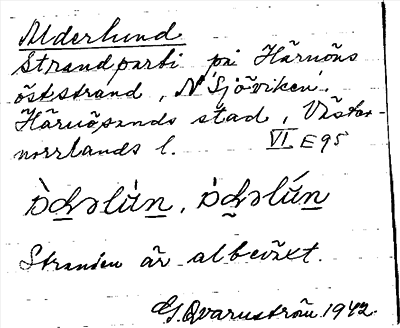 Alderlund
Strandparti på Härnöns
öststrand, N 'Sjöviken'.
Härnösands stad, Väster-
norrlands l. VI E 95
Stranden är albeväxt.
G. Qvarnström 1942.